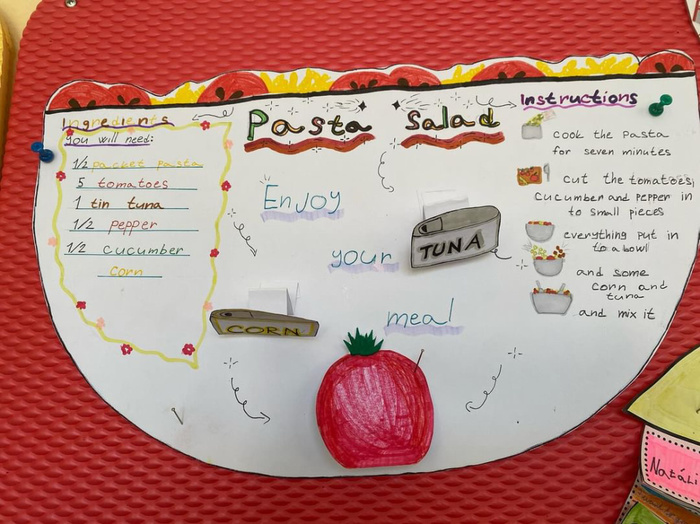 Pasta Salad
Ingredients
You will need:
1/2 packet pasta
5 tomatoes
1 tin tuna
1/2 pepper
1/2 cucumber
corn
Enjoy
your
meal
TUNA
CORN
Instructions
Cook the pasta
for seven minutes
Cut the tomatoes,
Cucumber and Pepper in
to small pieces
everything put in
to a bowl
and some
corn and
tuna
and mix it
Natáli